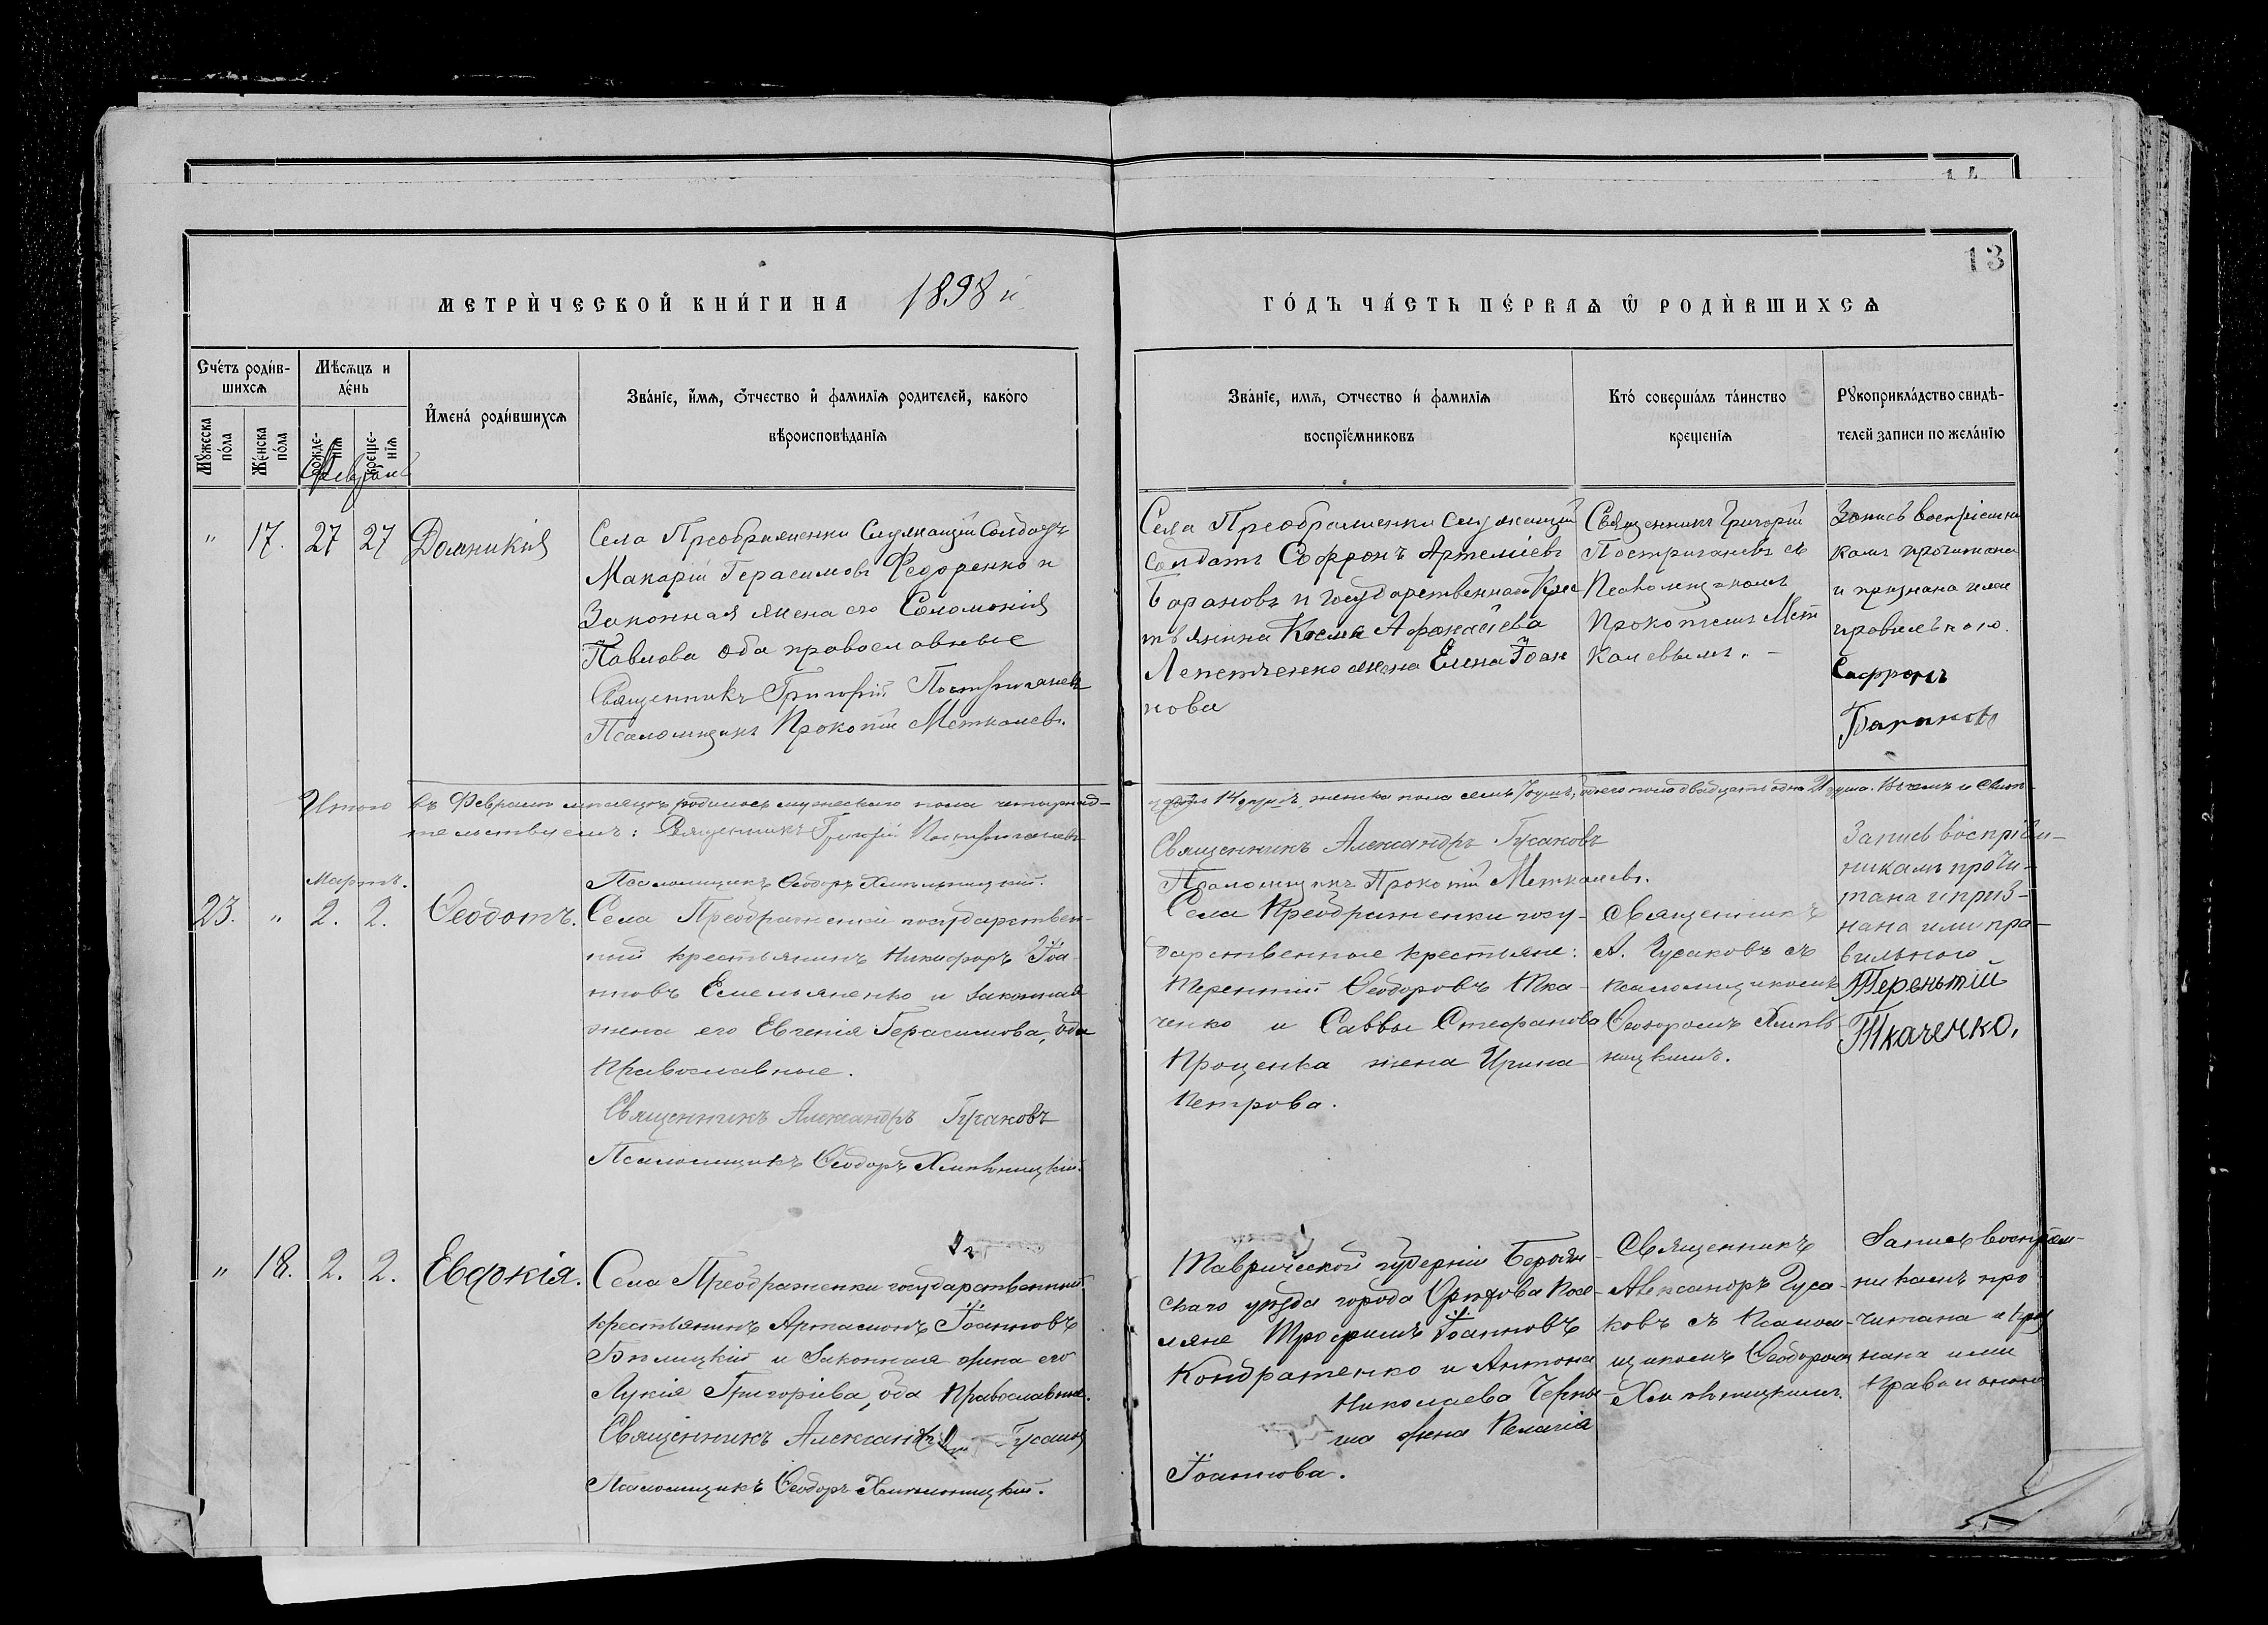 13
МЕТРИ́ЧЕСКОЙ КНИ́ГИ НА 1898 й
ГО́ДЪ ЧА́СТЬ ПЕ́РВАѦ Ѿ РОДИ́ВШИХСѦ
Сче́тъ роди́в-
шихсѧ
Мѣ́сѧцъ и
де́нь
Му́жеска
по́ла
Же́нска
по́ла
рожде-
нїѧ
креще-
нїѧ
И҆мена̀ роди́вшихсѧ
Зва́нїе, и҆́мѧ, ѻ҆́тчество и҆ фами́лїѧ роди́телей, како́гѡ
вѣроисповѣ́данїѧ
Зва́нїе, имѧ, ѻтчество и҆ фами́лїѧ
воспрїе́мниковъ
Кто́ соверша́лъ та́инство
креще́нїѧ
Рꙋкоприкла́дство свидѣ́-
телей записи по жела́нїю
Февраль
" 17. 27 27 Домникія
Села Преображенки Служащій Солдатъ
Макарій Герасимовъ Федоренко и
Законная жена его Соломонія
Павлова оба православные
Священникъ Григорій Постригачевъ
Псаломщикъ Прокопій Меткалевъ.
Села Преображенки служащій
солдатъ Софронъ Артеміевъ
Барановъ и государственнаго Крес
тьянина Космы Афанасіева
жена Елена Іоан
нова
Священникъ Григорій
Постригачевъ съ
Псаломщикомъ
Прокопіемъ Мет
калевымъ. –
Запись воспріемни
камъ прочитана
и признана ими
правильною.
Софронъ
Барановъ
Итого въ Февралѣ мѣсяцѣ родилось мужескаго пола четырнад-
цать 14 душъ, женска пола семь 7 душъ, обоего пола двадцать одна 21 душа. В чемъ и свидѣ-
тельствуемъ: Священникъ Григорій Постригачевъ
Священникъ Александръ Гусаковъ
Псаломщикъ Ѳеодоръ Хмѣльницкій.
Псаломщикъ Прокопій Меткалевъ.
Мартъ.
23. " 2. 2. Ѳеодотъ.
Села Преображенки государствен-
ный крестьянинъ Никифоръ Іоа-
нновъ Емельяненко и законная
жена его Евгенія Герасимова, оба
православные.
Священникъ Александръ Гусаковъ
Псаломщикъ Ѳеодоръ Хмѣльницкій.
Села Преображенки госу-
дарственные крестьяне:
Терентій Ѳеодоровъ Тка-
ченко и Саввы Стефанова
Проценка жена Ирина
Петрова.
Священникъ
А. Гусаковъ съ
псаломщикомъ
Ѳеодоромъ Хмѣль-
ницкимъ.
Запись воспріем-
никамъ прочи-
тана и приз-
нана ими пра-
вильною
Тереньтій
Ткаченко.
" 18. 2. 2. Евдокія.
Села Преображенки государственный
крестьянинъ Артамонъ Іоанновъ
Бѣлицкій и законная жена его
Лукія Григоріева, оба православные.
Священникъ Александръ Гусаковъ
Псаломщикъ Ѳеодоръ Хмѣльницкій.
Таврической губерніи Бердян-
скаго уѣзда города Орѣхова посе-
ляне Трофимъ Іоанновъ
Кондратенко и Антона
Николаева
жена Пелагія
Іоаннова.
Священникъ
Александръ Гуса-
ковъ съ псалом-
щикомъ Ѳеодоромъ
Хмѣльницкимъ.
Запись воспріем-
никамъ про
читана и приз
нана ими